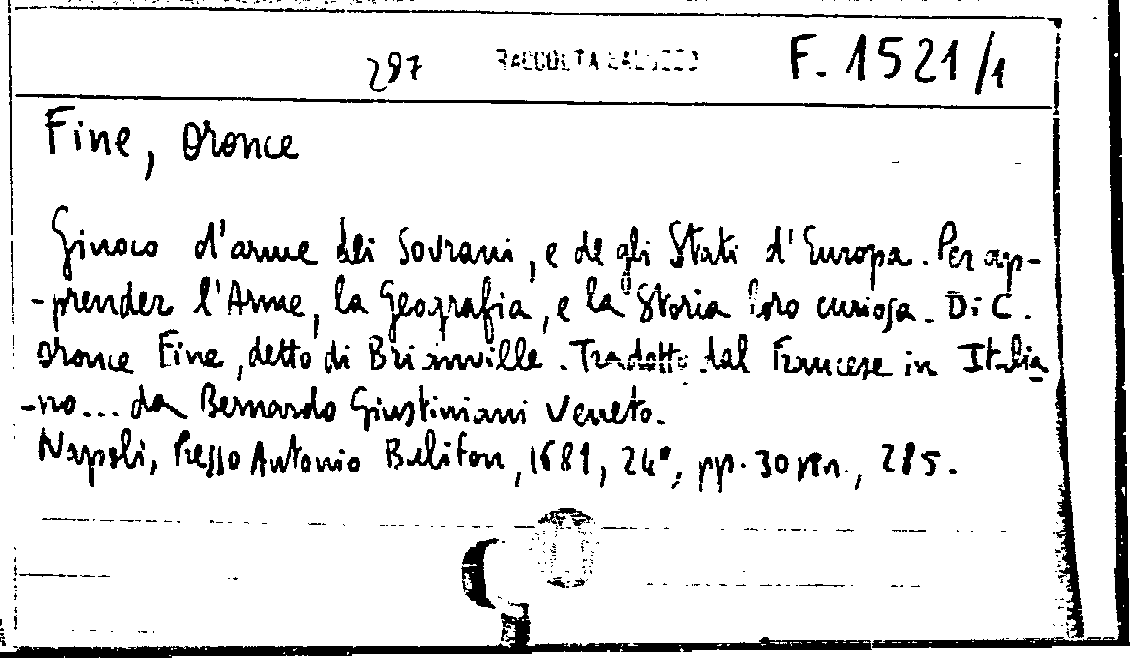 287 RACCOLTA F. 1521/1
Fine, Oronce
Giuoco d'arme dei Sovrani, e degli Stati d'Europa. Per ap-
-prender l'Arme, la Geografia, e la Storia loro curiosa. Di C.
Oronce Fine, detto di Brianville. Tradotto dal Francese in Italia
-no... da Bernardo Giustiniani Veneto.
Napoli, Presso Antonio Bulifon, 1681, 24°, pp. 30 nn., 285.